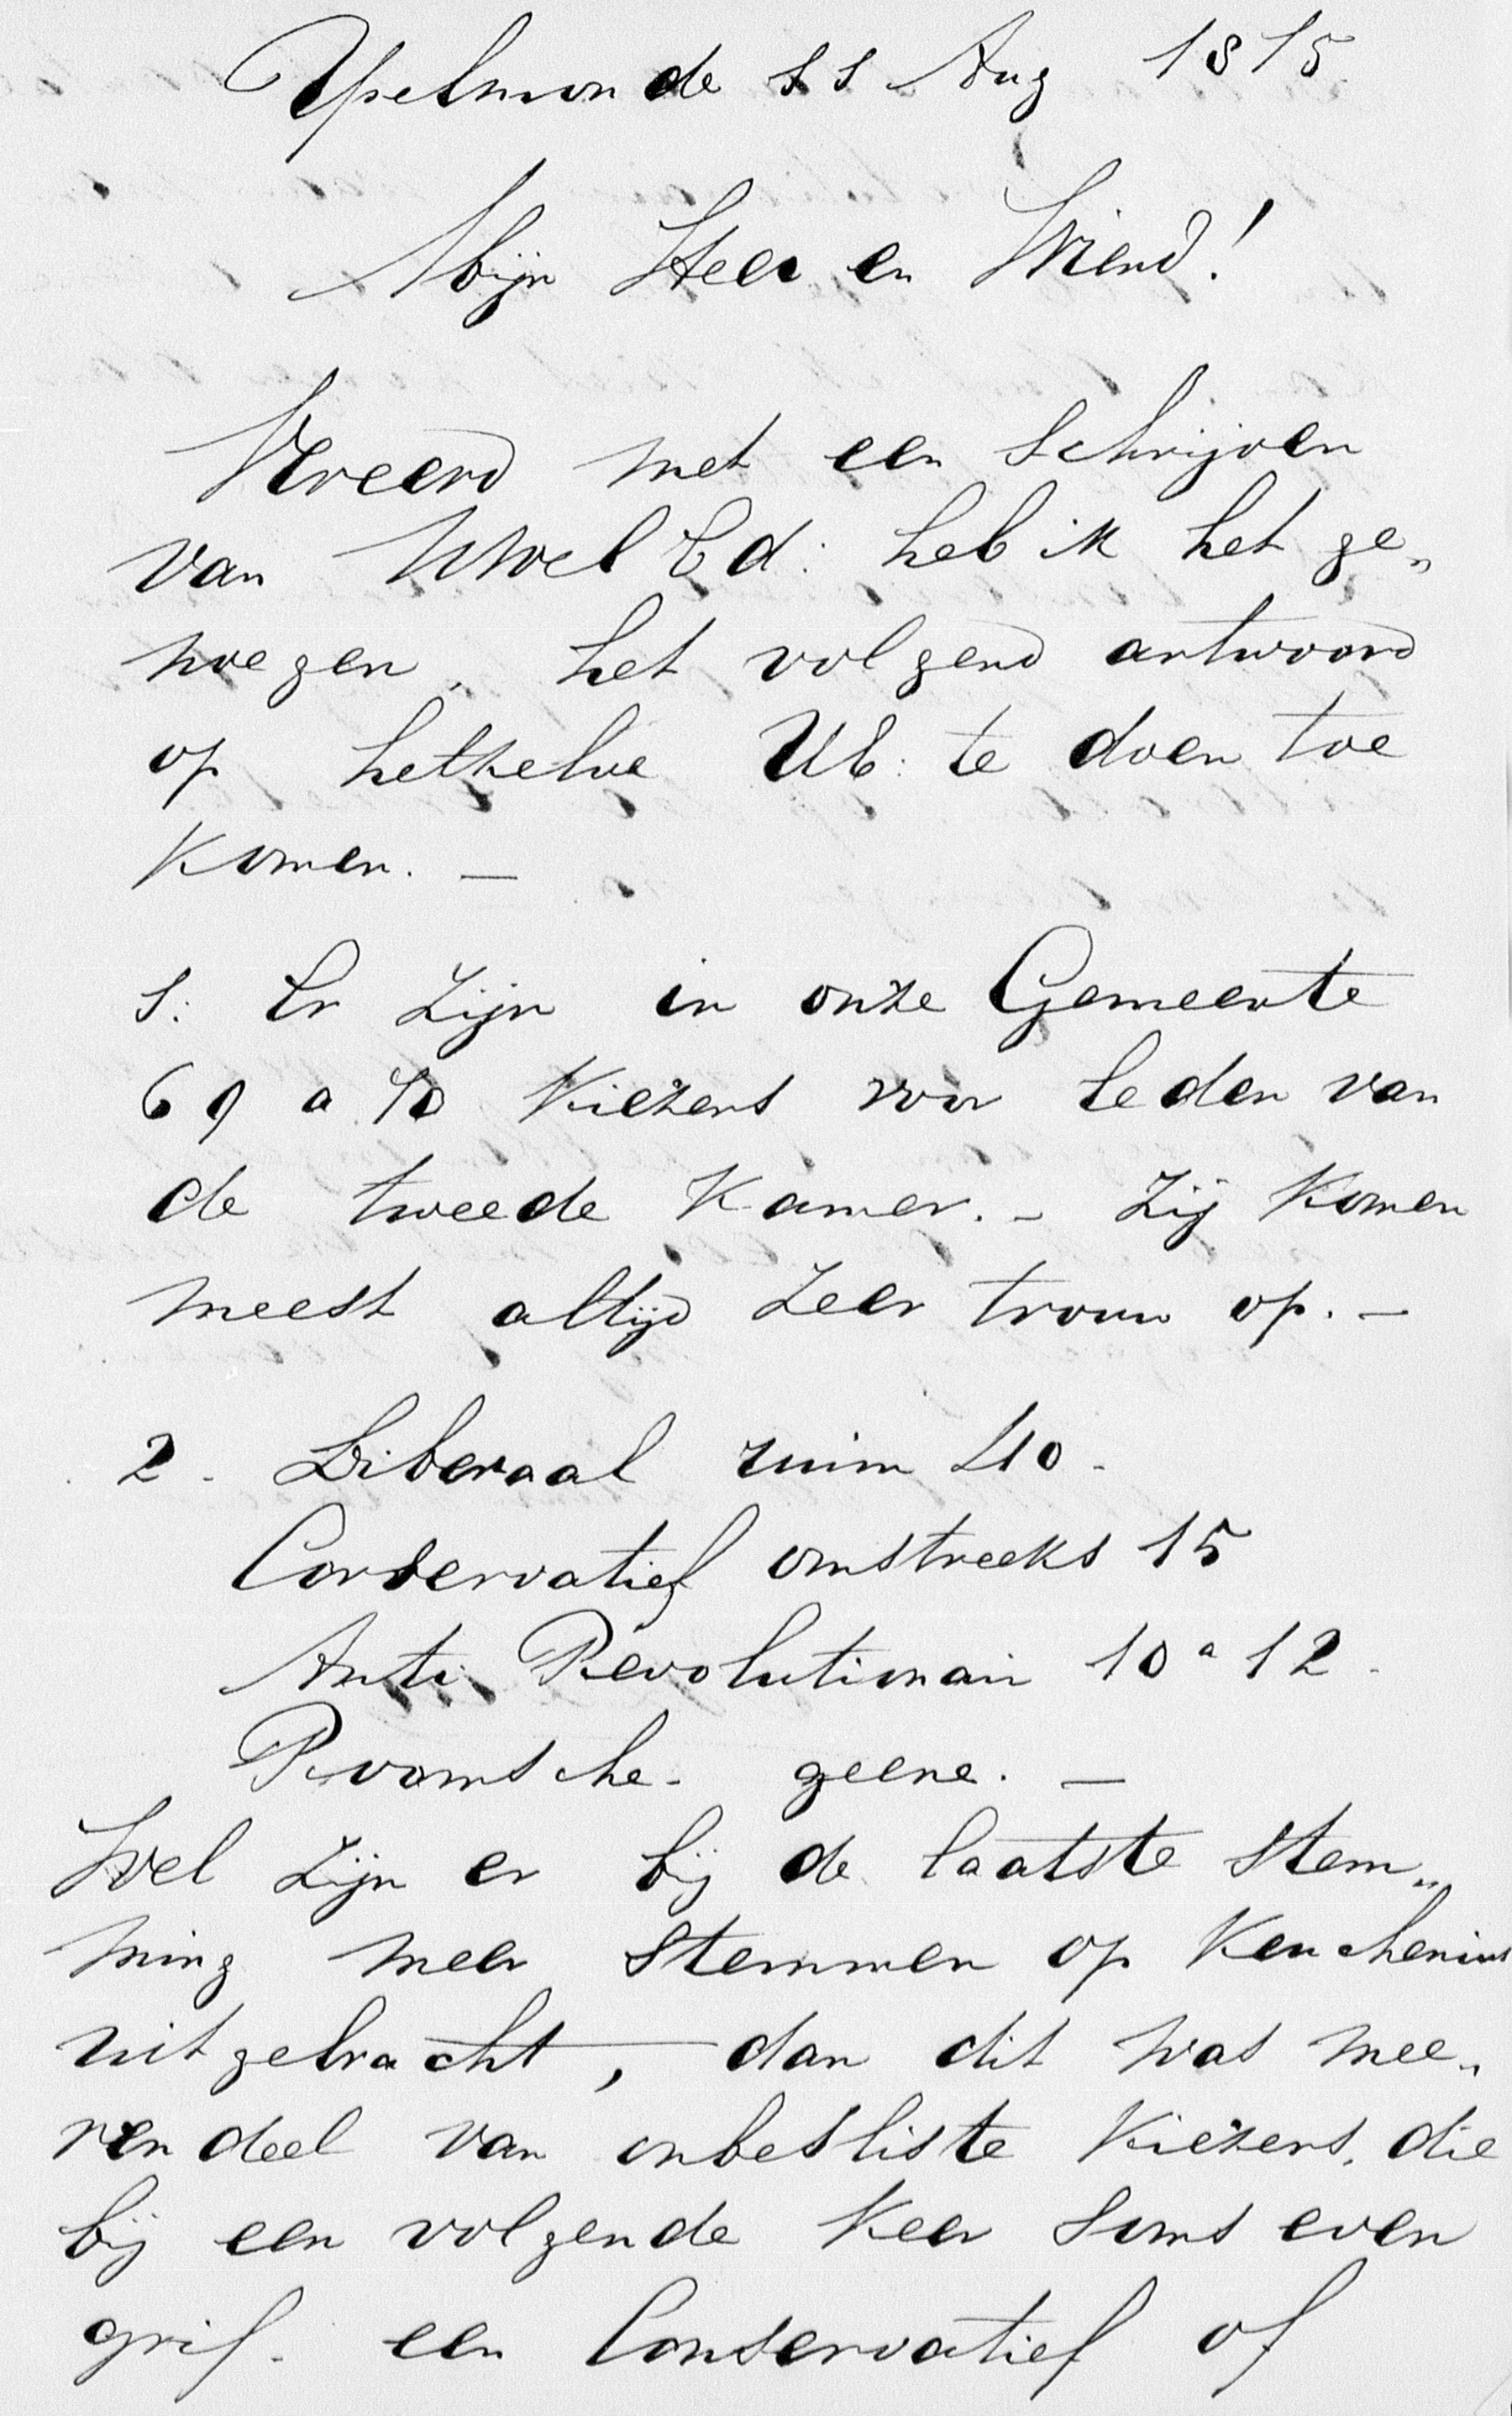 IJselmonde 11 Aug 1875
Mijn Heer en Vriend!
Vereerd met een schrijven
van UWelEd: heb ik het ge„
noegen, het volgend antwoord
op hetzelve UE: te doen toe
komen. —
1: Er zijn in onze Gemeente
69 a 70 Kiezers voor leden van
de tweede Kamer. – Zij komen
meest altijd zeer trouw op. –
2. Liberaal ruim 40.
Conservatief omstreeks 15
Anti Revolutionair 10 a 12.
Roomsche. geene. —
Wel zijn er bij de laatste stem„
ming meer stemmen op Keuchenius
uitgebracht, dan dit was mee„
rendeel van onbesliste Kiezers, die
bij een volgende keer soms even
grif. een Conservatief of